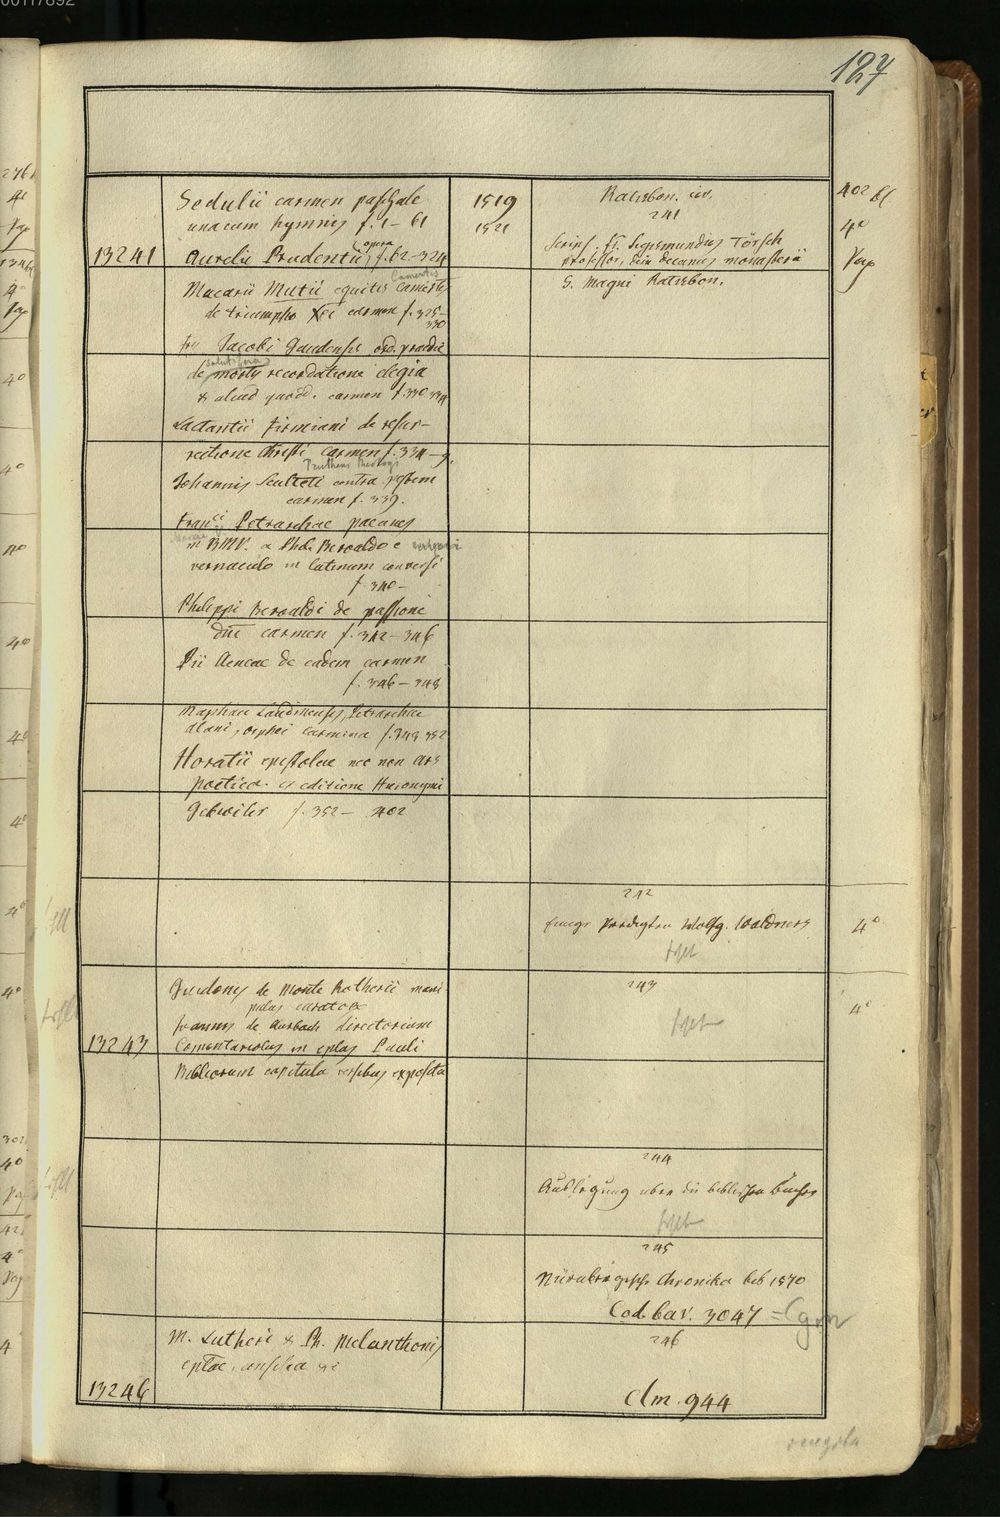 00117892
127
Sedulii carmen paschale
una cum hymnis f. 1–61
13241
Aurelii Prudentii opera f. 62–324
Macarii Mutii equitis Camertis
de triumpho Xti carmen f. 325–
330
fris Jacobi Gaudensis ord. praedic
de salutifera mortis recordatione elegia
& aliud quodd. carmen f. 330 334
Lactantii Firmiani de resur–
rectione Christi carmen f. 334–9.
Johannis Sculteti contra pestem
carmen f. 339.
Franci Petrarchae paeanes
in BMV. a Phil. Beroaldo e
vernaculo in latinum conversi
f. 340–
Philippi Beroaldi de passione
dni carmen f. 342–346
Pii Aeneae de eadem carmen
f. 346–348
Petrarchae
alani, orphei carmina f. 348 352
Horatii epistolae nec non ars
poetica. ex editione Hieronymi
Gebwiler f. 352– 402
1519
1521
Ratisbon. civ.
241
Scrips. fr. Sigismundus Törsch
professor, dein decanus monasterii
S. Magni Ratisbon.
402 bl
4°
Pap
242
Einige Predigten Wolfg. Waldners
fehlt
4°
Guidonis de Monte Rotherii mani
pulus curator
13243
Joannis de Aurbach directorium
Comentariolus in eplas Pauli
Bibliorum capitula versibus exposita
243
fehlt
4°
244
Auslegung uber die biblischen Bücher
fehlt
245
Nürnbergische Chronika bis 1570
Cod. bav. 3047 = Cgm
13246
M. Lutheri & Ph. Melanthonis
eplae, consilia
246
Clm. 944